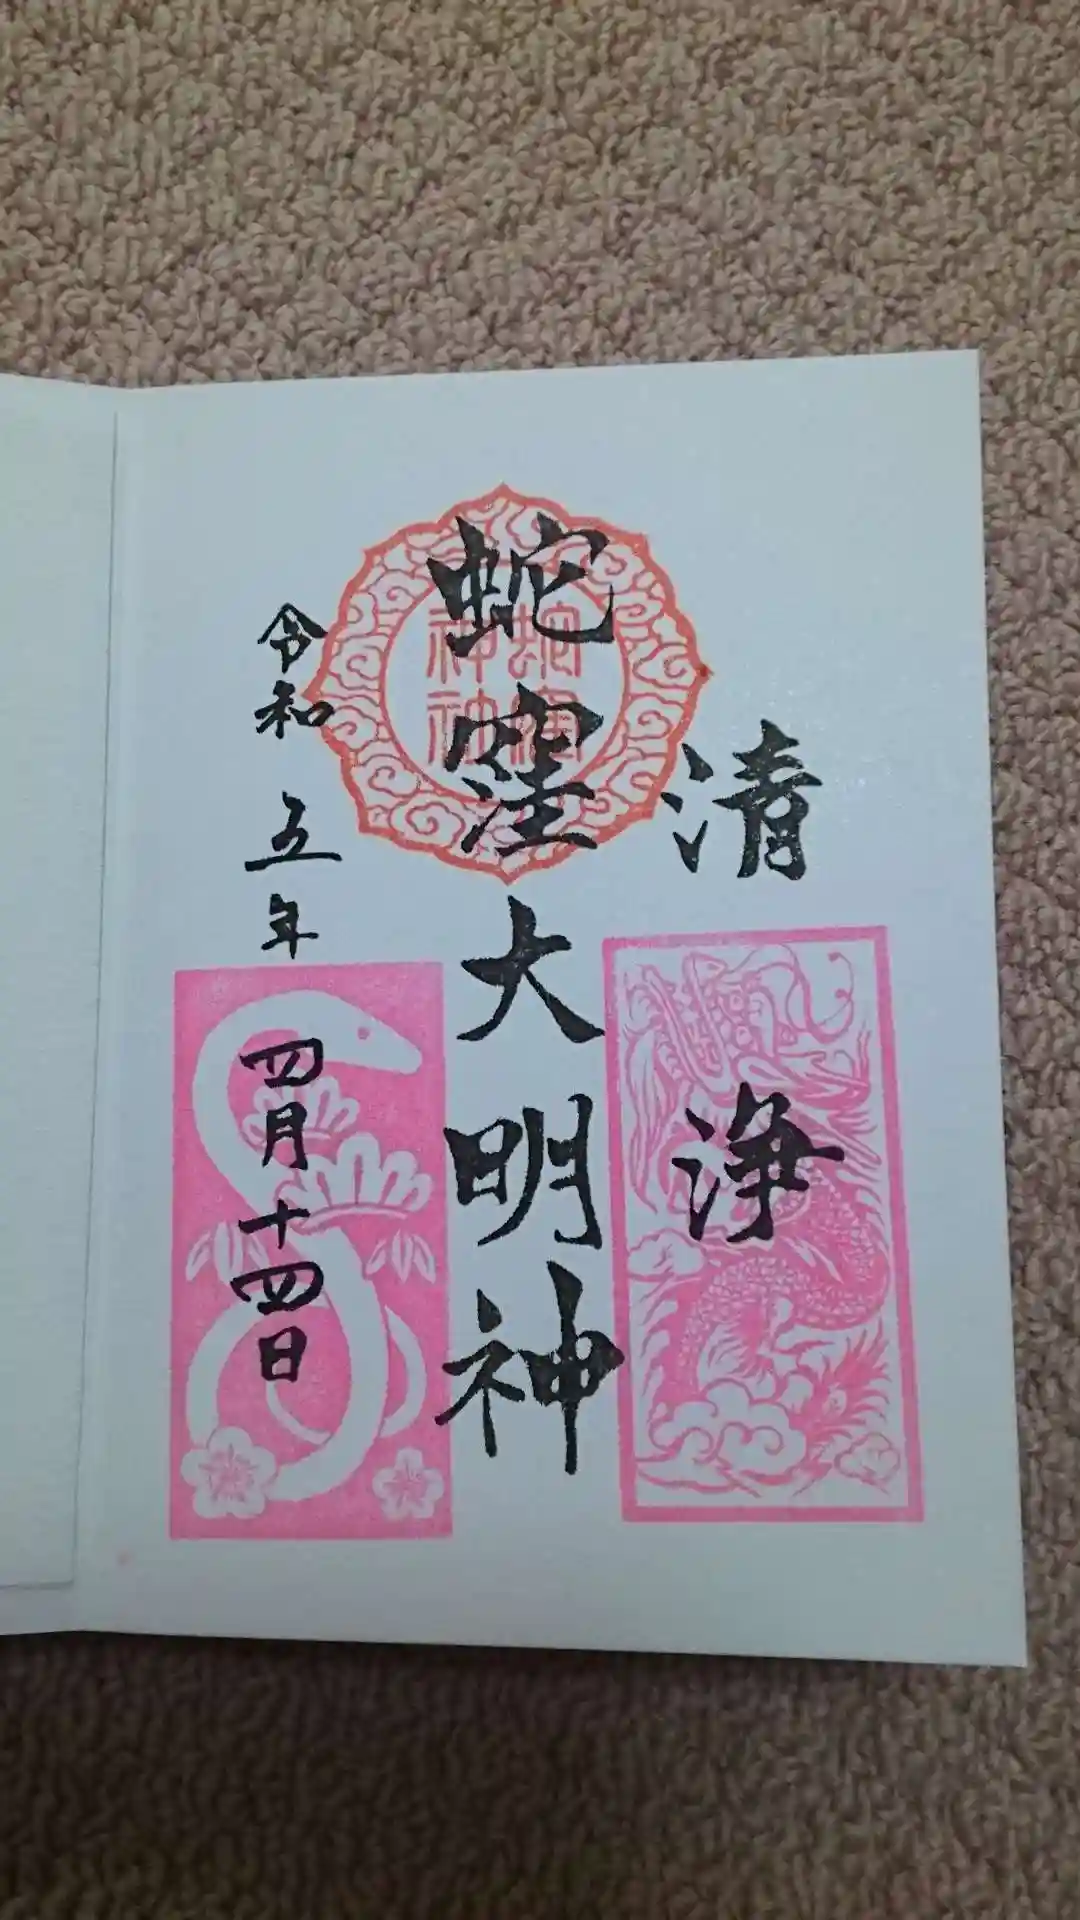 清浄
蛇窪大明神
蛇窪
神社
令和五年四月十四日